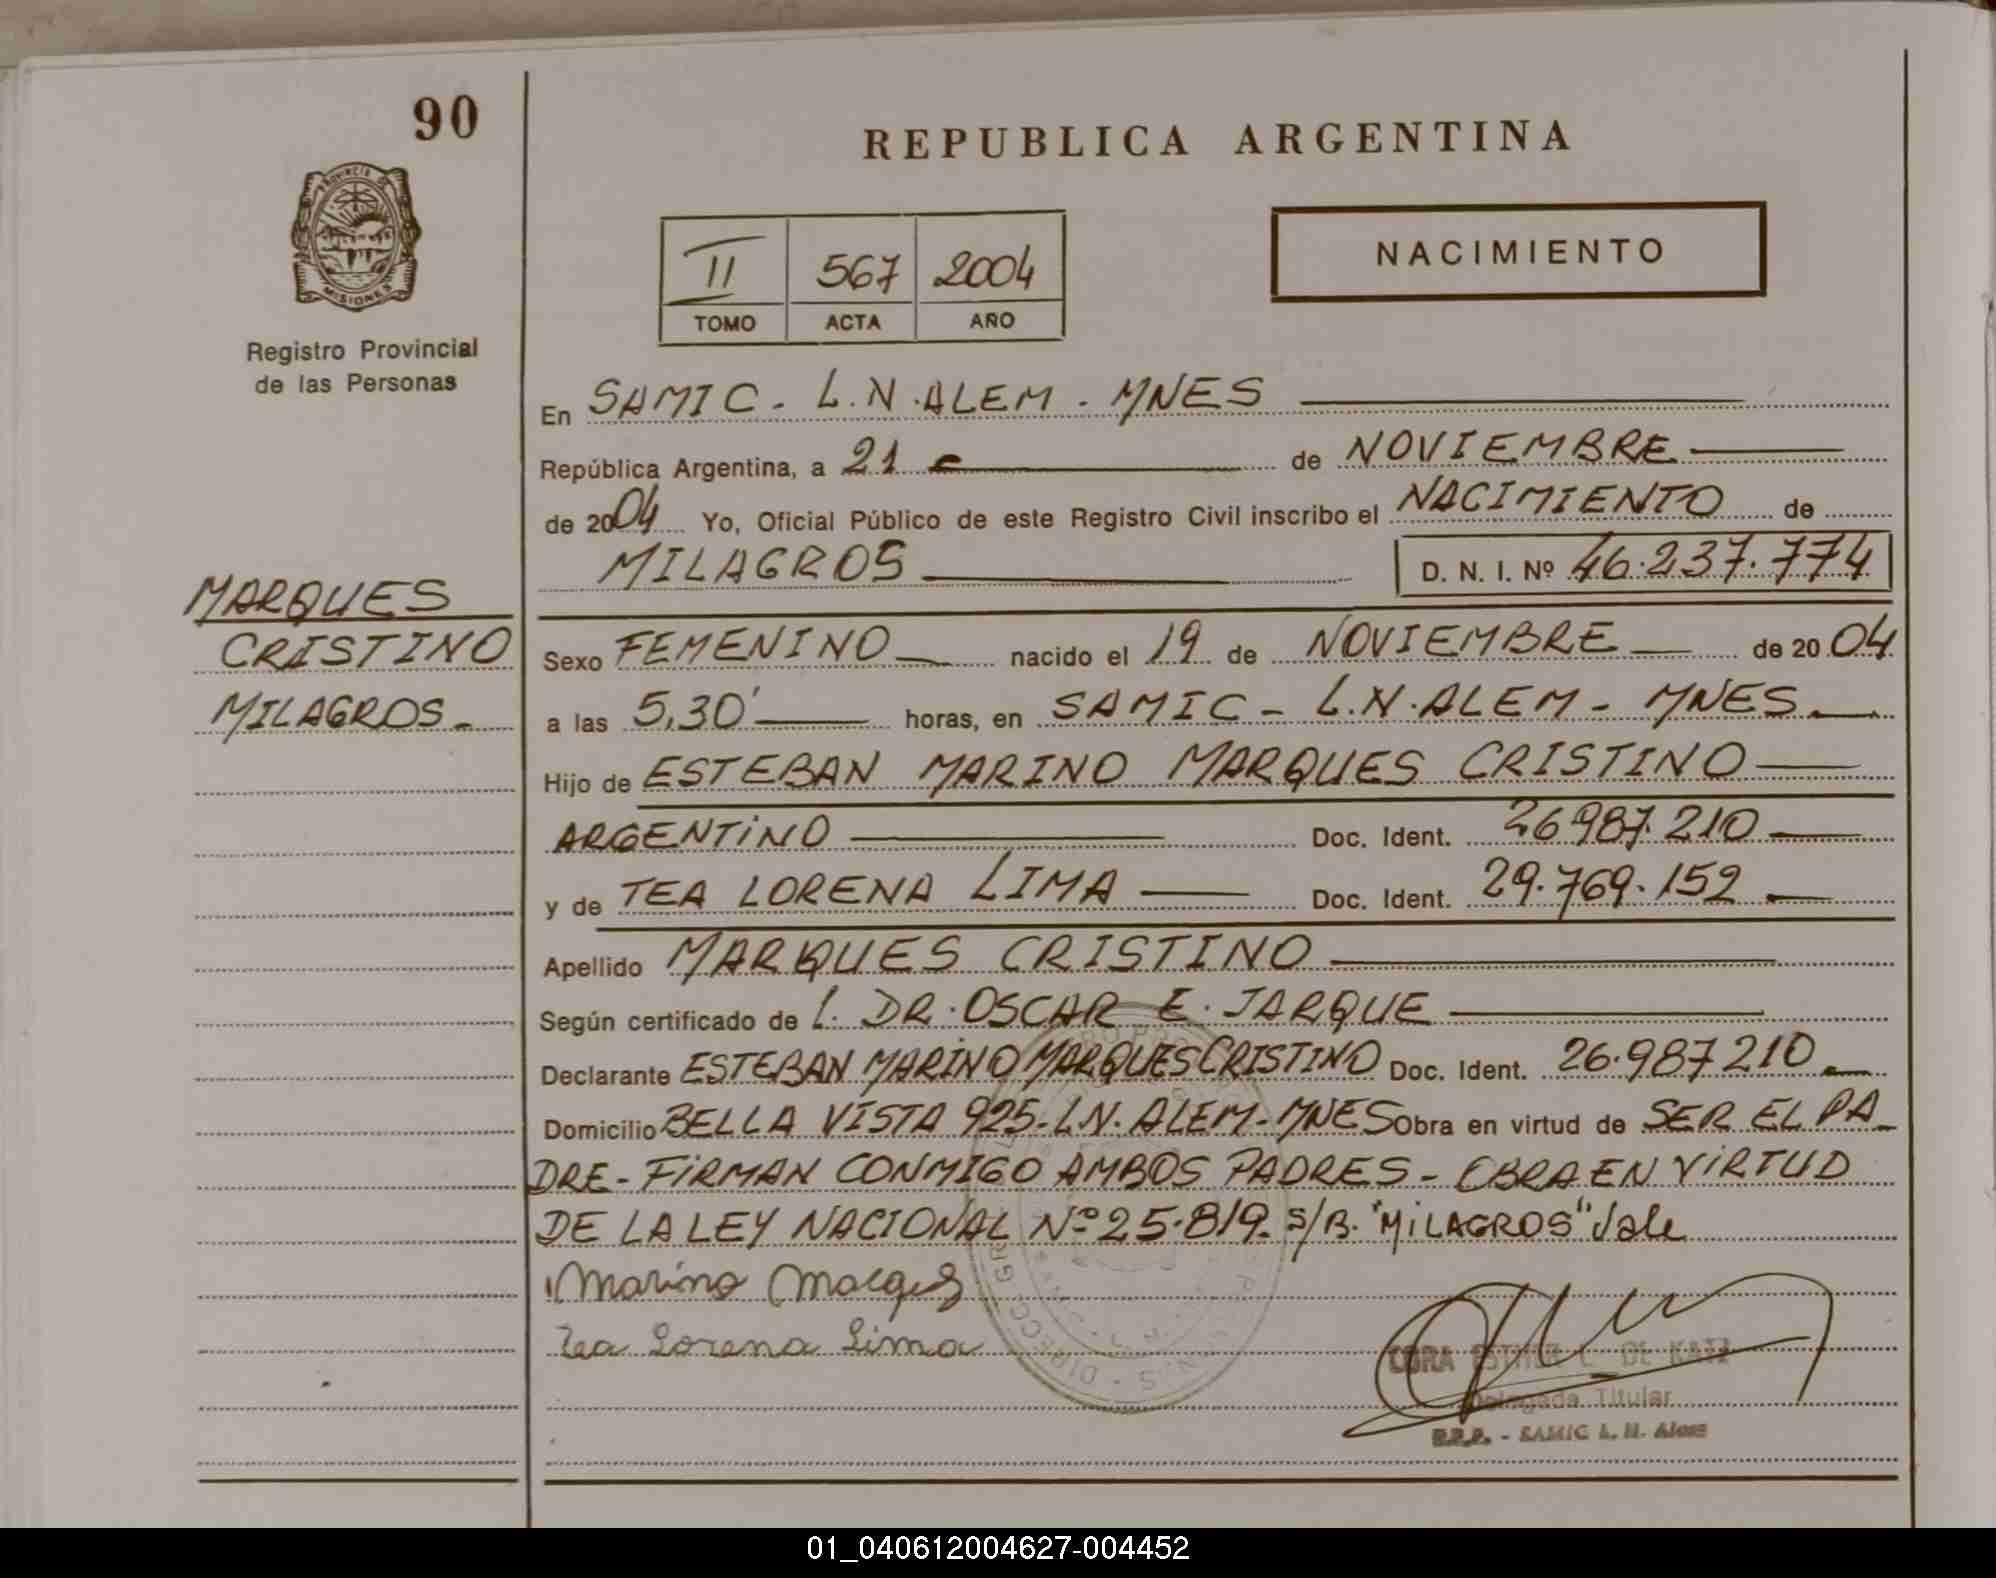 90
REPUBLICA ARGENTINA
PROVINCIA DE
MISIONES
Registro Provincial
de las Personas
II 567 2004
TOMO ACTA AÑO
NACIMIENTO
En SAMIC - L.N.ALEM - MNES
República Argentina, a 21 de NOVIEMBRE
de 2004 Yo, Oficial Público de este Registro Civil inscribo el NACIMIENTO de
MILAGROS D. N. I. Nº 46.237.774
MARQUES
CRISTINO
MILAGROS.-
Sexo FEMENINO nacido el 19 de NOVIEMBRE de 2004
a las 5,30' horas, en SAMIC - L.N.ALEM - MNES.
Hijo de ESTEBAN MARINO MARQUES CRISTINO
ARGENTINO Doc. Ident. 26987.210
y de TEA LORENA LIMA Doc. Ident. 29.769.152
Apellido MARQUES CRISTINO
Según certificado de 1. DR. OSCAR E. JARQUE
Declarante ESTEBAN MARINO MARQUES CRISTINO Doc. Ident. 26.987210
Domicilio BELLA VISTA 925-L.N.ALEM-MNES Obra en virtud de SER EL PA-
DRE-FIRMAN CONMIGO AMBOS PADRES - OBRA EN VIRTUD
DE LA LEY NACIONAL Nº 25.819. S/B. "MILAGROS" Vale
Marino Marques
Tea Lorena Lima
CORA ESTHER C. DE KATZ
Delegada Titular
R.P.P. - SAMIC L. N. Alem
01_040612004627-004452